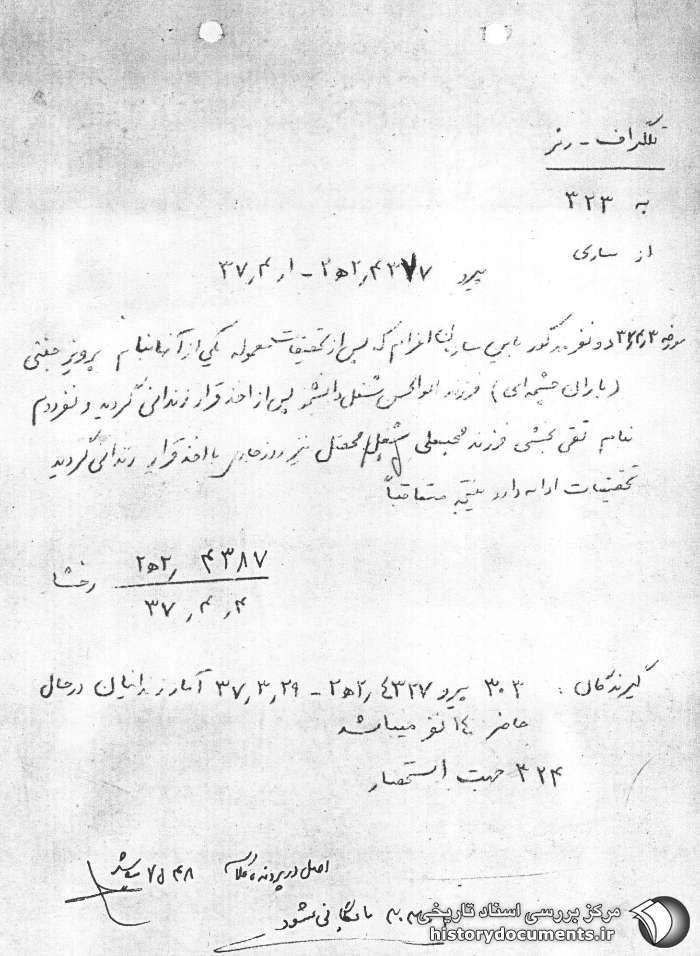 تلگراف - رمز
به ۳۲۳
از ساری
پیرو ۴۳۷۷ر۲ﻫ۲ - ۱ر۴ر۳۷
مورخه ۳ر۴ر۳۷ دو نفر مذکور باین سازمان اعزام که پس از تحقیقات معموله یکی از آنها بنام پرویز جتنی
(باران چشمه‌ای) فرزند ابوالحسن شغل دانشجو پس از اخذ قرار زندانی گردید و نفر دوم
بنام تقی بخشی فرزند محبعلی شغل محصل نیز روز جاری با اخذ قرار زندانی گردید
تحقیقات ادامه دارد نتیجه متعاقباً
۴۳۸۷ر۲ﻫ۲
۴ر۴ر۳۷
گیرندگان : ۳۰۳ پیرو ۴۳۲۷ر۲ﻫ۲ - ۲۹ر۳ر۳۷ آمار زندانیان در حال
حاضر ۱۴ نفر میباشد
۳۲۴ جهت استحضار
اصل در پرونده کلاسه
بایگانی شود
مرکز بررسی اسناد تاریخی
historydocuments.ir